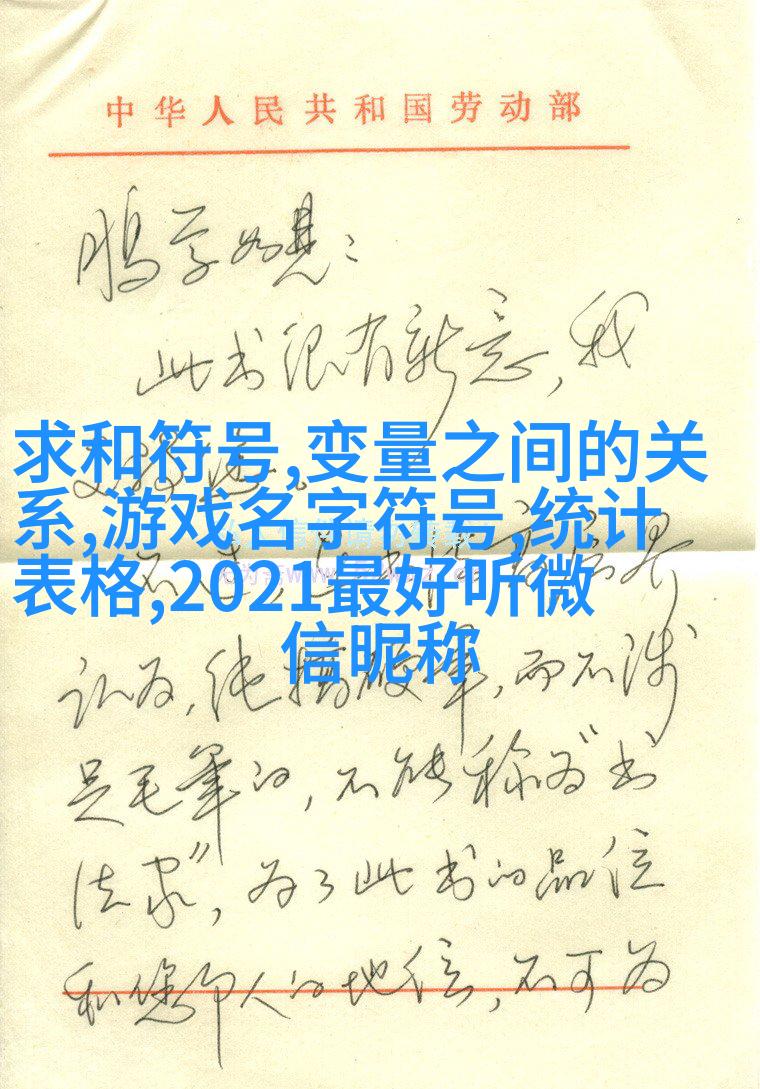 中华人民共和国劳动部
鹏学如晤：
此书很有新意，我
求和符号,变量之间的关
系,游戏名字符号,统计
表格,2021最好听微
信昵称
认为，纯搞硬笔，而不涉
足毛笔的，不能称为“书
法家”，为了此书的品位
和您印人的地位，不可为